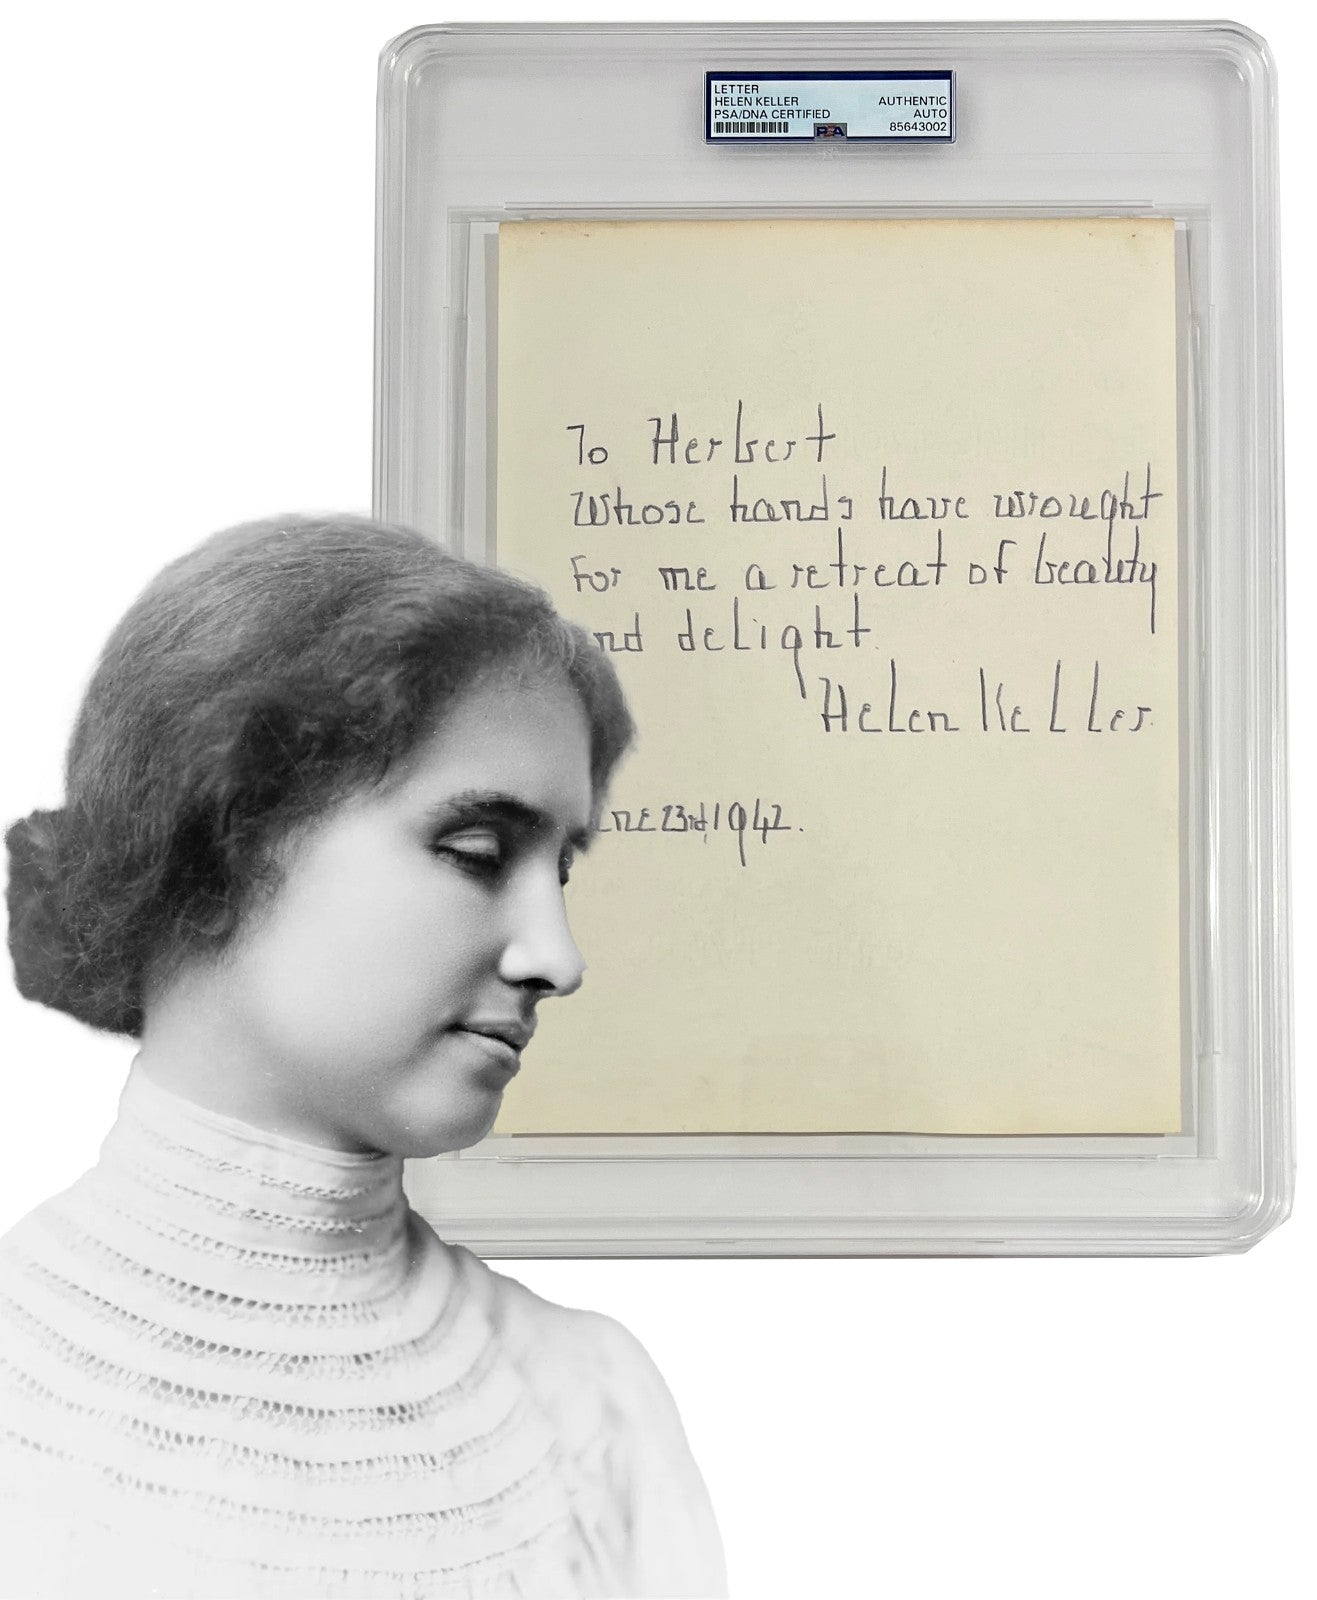 LETTER
HELEN KELLER AUTHENTIC
PSA/DNA CERTIFIED AUTO
PSA 85643002
To Herbert
Whose hands have wrought
For me a retreat of beauty
nd delight.
Helen Keller.
ne 23rd, 1942.